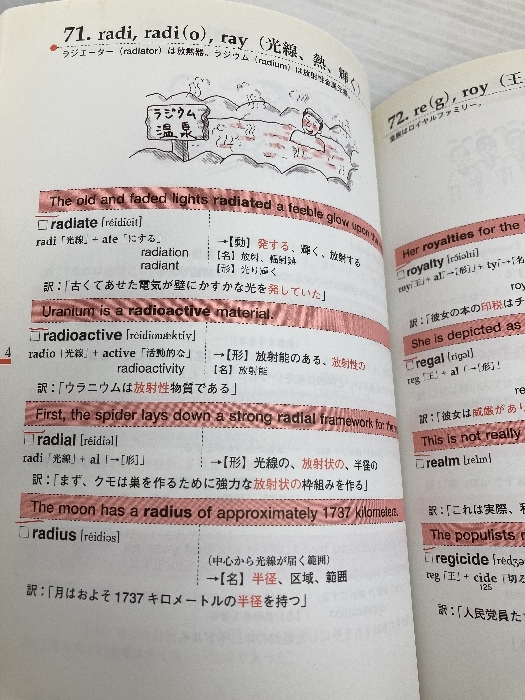 71. radi, radi(o), ray (光線、熱、輝く)
ラジエーター (radiator) は放熱器。ラジウム (radium) は放射性金属元素。
ラジウム
温泉
The old and faded lights radiated a feeble glow upon the
radiate [réidièit]
radi「光線」+ ate「にする」
→【動】発する、輝く、放射する
radiation
【名】放射、輻射
radiant
【形】光り輝く
訳：「古くてあせた電気が壁にかすかな光を発していた」
Uranium is a radioactive material.
radioactive [rèidiouǽktiv]
radio「光線」+ active「活動的な」
→【形】放射能のある、放射性の
radioactivity
【名】放射能
訳：「ウラニウムは放射性物質である」
First, the spider lays down a strong radial framework for the
radial [réidiəl]
radi「光線」+ al「→[形]」
→【形】光線の、放射状の、半径の
訳：「まず、クモは巣を作るために強力な放射状の枠組みを作る」
The moon has a radius of approximately 1737 kilometers.
radius [réidiəs]
(中心から光線が届く範囲)
→【名】半径、区域、範囲
訳：「月はおよそ 1737 キロメートルの半径を持つ」
4
72. re(g), roy (王
皇族はロイヤルファミリー。
Her royalties for the
royalty [rɔ́iəlti]
roy「王」+ al「→[形]」+ ty「→[名
roy
訳：「彼女の本の印税は
She is depicted as
regal [rígəl]
reg「王」+ al「→[形]」
re
訳：「彼女は威厳があり
This is not really
realm [relm]
訳：「これは実際、
The populists
regicide [rédʒə
reg「王」+ cide「切る
125
訳：「人民党員た